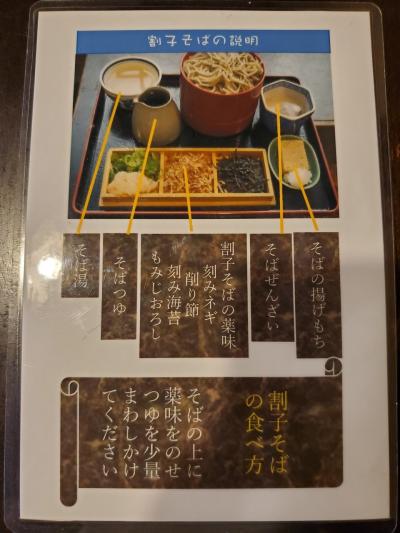 割子そばの説明
そばの揚げもち
そばぜんざい
割子そばの薬味
刻みネギ
削り節
刻み海苔
もみじおろし
そばつゆ
そば湯
割子そば
の食べ方
そばの上に
薬味をのせ
つゆを少量
まわしかけ
てください